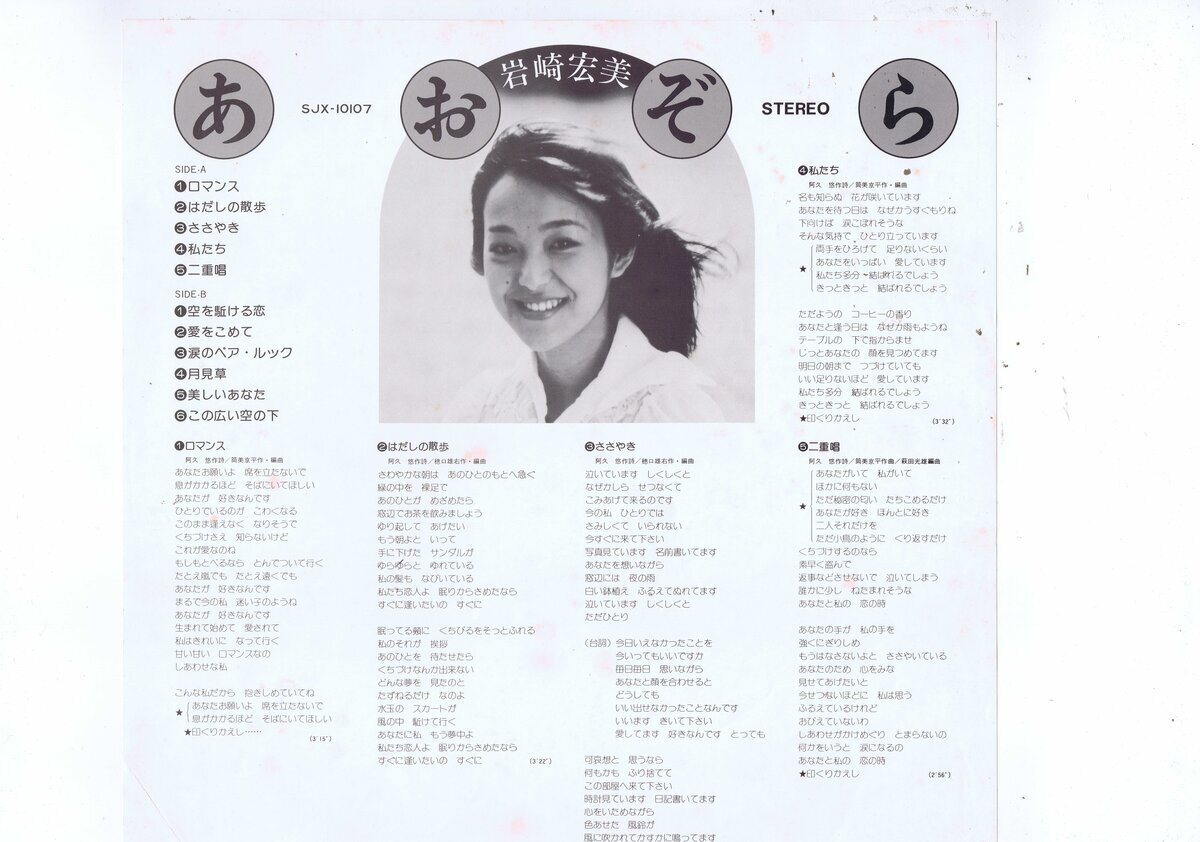 岩崎宏美
あおぞら
SJX-10107
STEREO
SIDE-A
❶ロマンス
❷はだしの散歩
❸ささやき
❹私たち
❺二重唱
SIDE-B
❶空を駈ける恋
❷愛をこめて
❸涙のペア・ルック
❹月見草
❺美しいあなた
❻この広い空の下
❶ロマンス
阿久 悠作詩/筒美京平作・編曲
あなたお願いよ 席を立たないで
息がかかるほど そばにいてほしい
あなたが 好きなんです
ひとりでいるのが こわくなる
このまま逢えなく なりそうで
くちづけさえ 知らないけど
これが愛なのね
もしもとべるなら とんでついて行く
たとえ嵐でも たとえ遠くでも
あなたが 好きなんです
まるで今の私 迷い子のようね
あなたが 好きなんです
生まれて始めて 愛されて
私はきれいに なって行く
甘い甘い ロマンスなの
しあわせな私
こんな私だから 抱きしめていてね
★あなたお願いよ 席を立たないで
息がかかるほど そばにいてほしい
★印くりかえし……
(3'15")
❷はだしの散歩
阿久 悠作詩/穂口雄右作・編曲
さわやかな朝は あのひとのもとへ急ぐ
緑の中を 裸足で
あのひとが めざめたら
窓辺でお茶を飲みましょう
ゆり起して あげたい
もう朝よと いって
手に下げた サンダルが
ゆらゆらと ゆれている
私の髪も なびいている
私たち恋人よ 眠りからさめたなら
すぐに逢いたいの すぐに
眠ってる頬に くちびるをそっとふれる
私のそれが 挨拶
あのひとを 待たせたら
くちづけなんか出来ない
どんな夢を 見たのと
たずねるだけ なのよ
水玉の スカートが
風の中 駈けて行く
あなたに私 もう夢中よ
私たち恋人よ 眠りからさめたなら
すぐに逢いたいの すぐに
(3'22")
❸ささやき
阿久 悠作詩/穂口雄右作・編曲
泣いています しくしくと
なぜかしら せつなくて
こみあげて来るのです
今の私 ひとりでは
さみしくて いられない
今すぐに来て下さい
写真見ています 名前書いてます
あなたを想いながら
窓辺には 夜の雨
白い鉢植え ふるえてぬれてます
泣いています しくしくと
ただひとり
(台詞) 今日いえなかったことを
今いってもいいですか
毎日毎日 思いながら
あなたと顔を合わせると
どうしても
いい出せなかったことなんです
いいます きいて下さい
愛してます 好きなんです とっても
可哀想と 思うなら
何もかも ふり捨てて
この部屋へ来て下さい
時計見ています 日記書いてます
心をいためながら
色あせた 風鈴が
風に吹かれてかすかに鳴ってます
❹私たち
阿久 悠作詩/筒美京平作・編曲
名も知らぬ 花が咲いています
あなたを待つ日は なぜかうすぐもりね
下向けば 涙こぼれそうな
そんな気持で ひとり立っています
★両手をひろげて 足りないくらい
あなたをいっぱい 愛しています
私たち多分 結ばれるでしよう
きっときっと 結ばれるでしよう
ただようの コーヒーの香り
あなたと逢う日は なぜか雨もようね
テーブルの 下で指からませ
じっとあなたの 顔を見つめてます
明日の朝まで つづけていても
いい足りないほど 愛しています
私たち多分 結ばれるでしよう
きっときっと 結ばれるでしよう
★印くりかえし
(3'32")
❺二重唱
阿久 悠作詩/筒美京平作曲/萩田光雄編曲
★あなたがいて 私がいて
ほかに何もない
ただ秘密の匂い たちこめるだけ
あなたが好き ほんとに好き
二人それだけを
ただ小鳥のように くり返すだけ
くちづけするのなら
素早く盗んで
返事などさせないで 泣いてしまう
誰かに少し ねたまれそうな
あなたと私の 恋の時
あなたの手が 私の手を
強くにぎりしめ
もうはなさないよと ささやいている
あなたのため 心をみな
見せてあげたいと
今せつないほどに 私は思う
ふるえているけれど
おびえていないわ
しあわせがかけめぐり とまらないの
何かをいうと 涙になるの
あなたと私の 恋の時
★印くりかえし
(2'56")